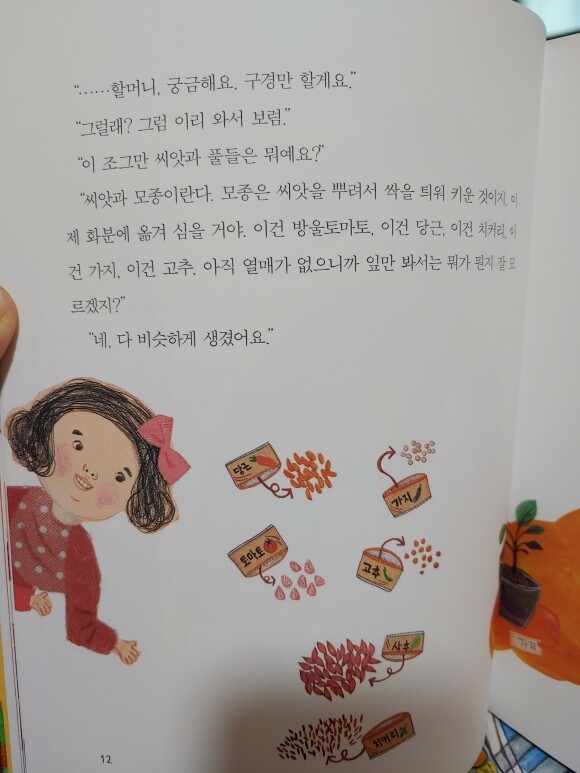 “……할머니, 궁금해요. 구경만 할게요.”
“그럴래? 그럼 이리 와서 보렴.”
“이 조그만 씨앗과 풀들은 뭐예요?”
“씨앗과 모종이란다. 모종은 씨앗을 뿌려서 싹을 틔워 키운 것이지, 이
제 화분에 옮겨 심을 거야. 이건 방울토마토, 이건 당근, 이건 치커리, 이
건 가지, 이건 고추. 아직 열매가 없으니까 잎만 봐서는 뭐가 뭔지 잘 모
르겠지?”
“네, 다 비슷하게 생겼어요.”
당근
가지
토마토
고추
상추
치커리
가지
12